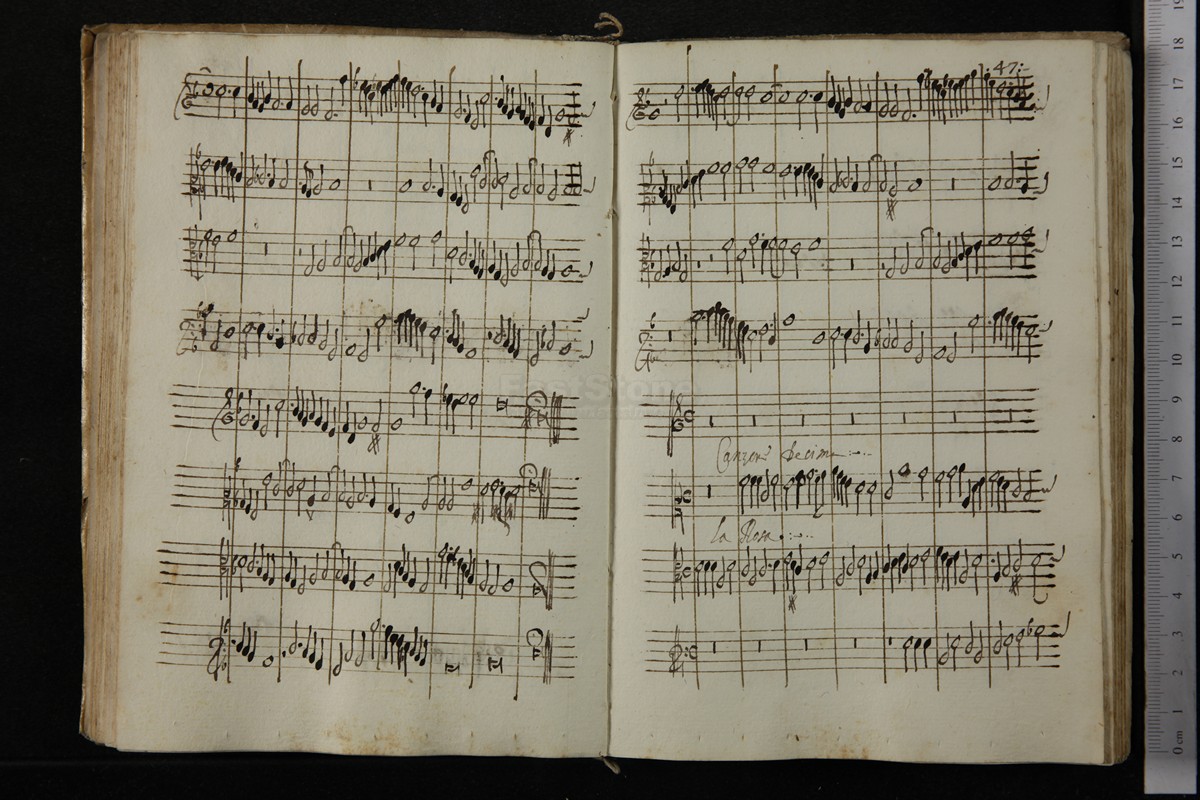 :47:
Canzon Decima
la Rosa
0 cm 1 2 3 4 5 6 7 8 9 10 11 12 13 14 15 16 17 18 19